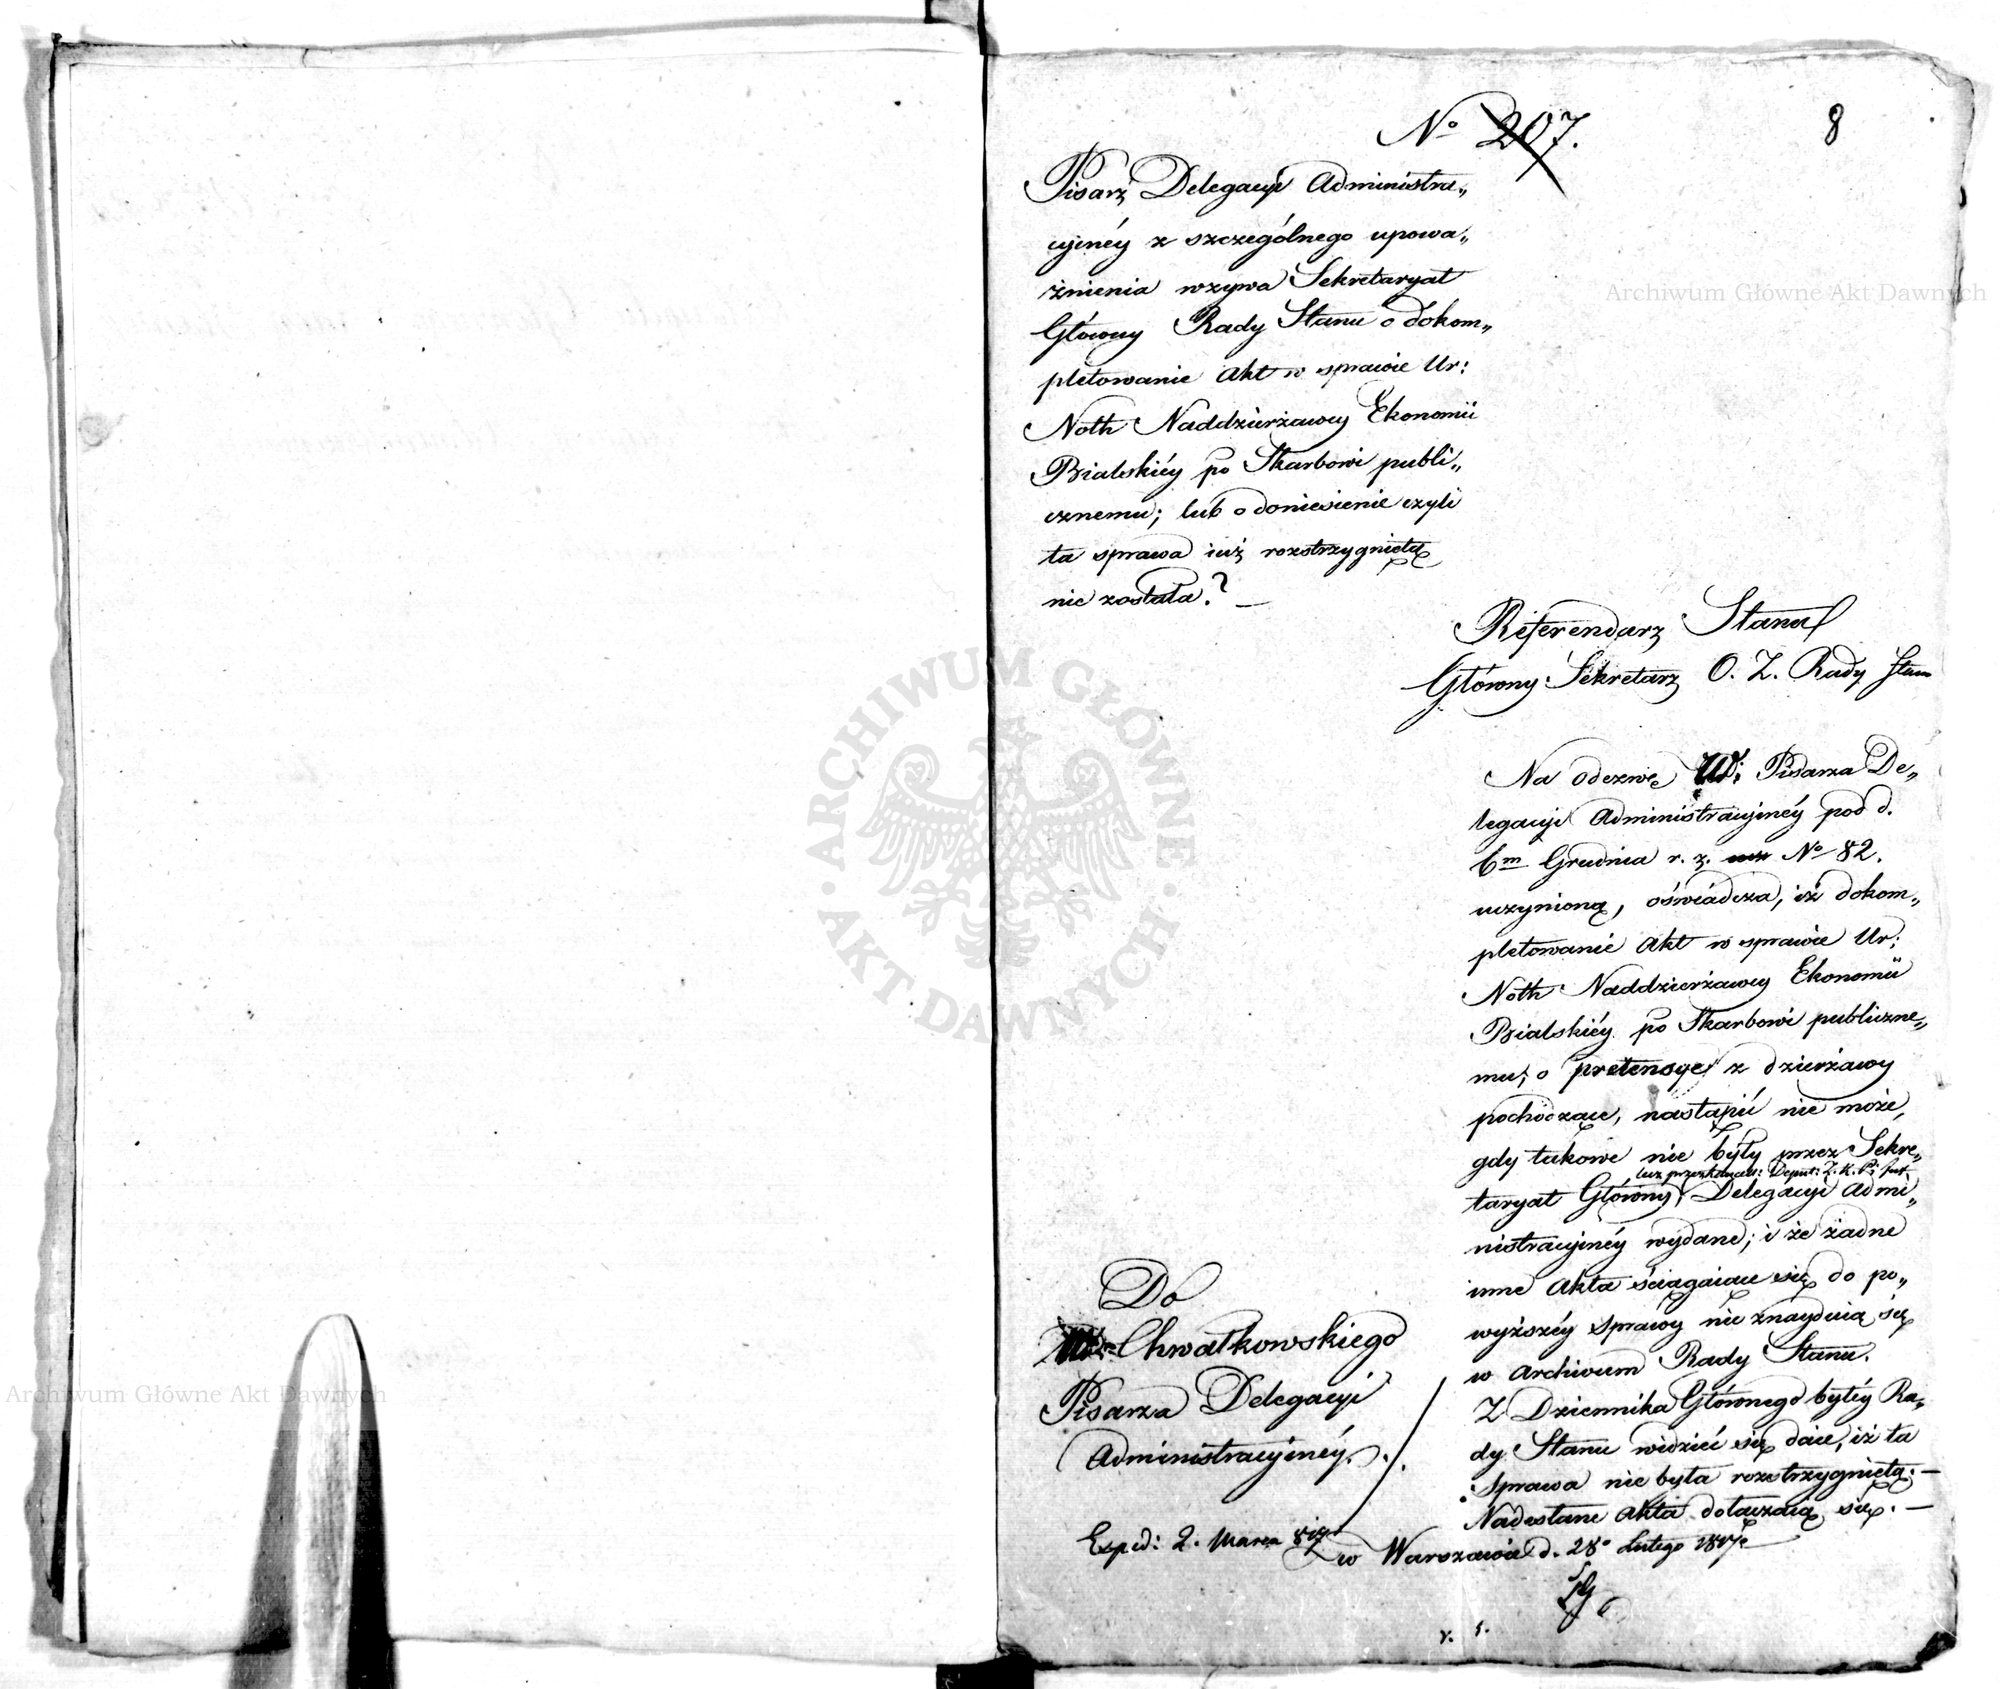 8
No 207.
Pisarz Delegacyi Administra„
cyinéy z szczególnego upowa„
żnienia wzywa Sekretaryat
Główny Rady Stanu o dokom„
pletowanie Akt w sprawie Ur:
Noth Naddzierżawcy Ekonomii
Bialskiéy po Skarbowi publi„
cznemu; lub o doniesienie czyli
ta sprawa iuż rozstrzygniętą
nie została? —
Referendarz Stanu
Główny Sekretarz O. Z. Rady Stanu
Na odezwę W: Pisarza De„
legacyi Administracyinéy pod d.
6m Grudnia r. z. No 82.
uczynioną, oświadcza, iż dokom„
pletowanie Akt w sprawie Ur:
Noth Naddzierżawcy Ekonomii
Bialskiéy po Skarbowi publiczne„
mu; o pretensye z dzierżawy
pochodzące, nastąpić nie może,
gdy takowe nie były przez Sekre„
taryat Główny Delegacyi Admi„
nistracyinéy wydane; i że żadne
inne Akta ściągaiące się do po„
wyższéy sprawy nie znayduią się
w Archivum Rady Stanu.
Z Dziennika Głównego byłéy Ra„
dy Stanu widzieć się daie, iż ta
Sprawa nie była rozstrzygniętą. —
Nadesłane Akta dołączaią się. —
w Warszawie d. 28o Lutego 1817.
Do
Chwałkowskiego
Pisarza Delegacyi
Administracyinéy.
Exped: 2. Marca 817
Archiwum Główne Akt Dawnych
ARCHIWUM GŁÓWNE · AKT DAWNYCH ·
Archiwum Główne Akt Dawnych